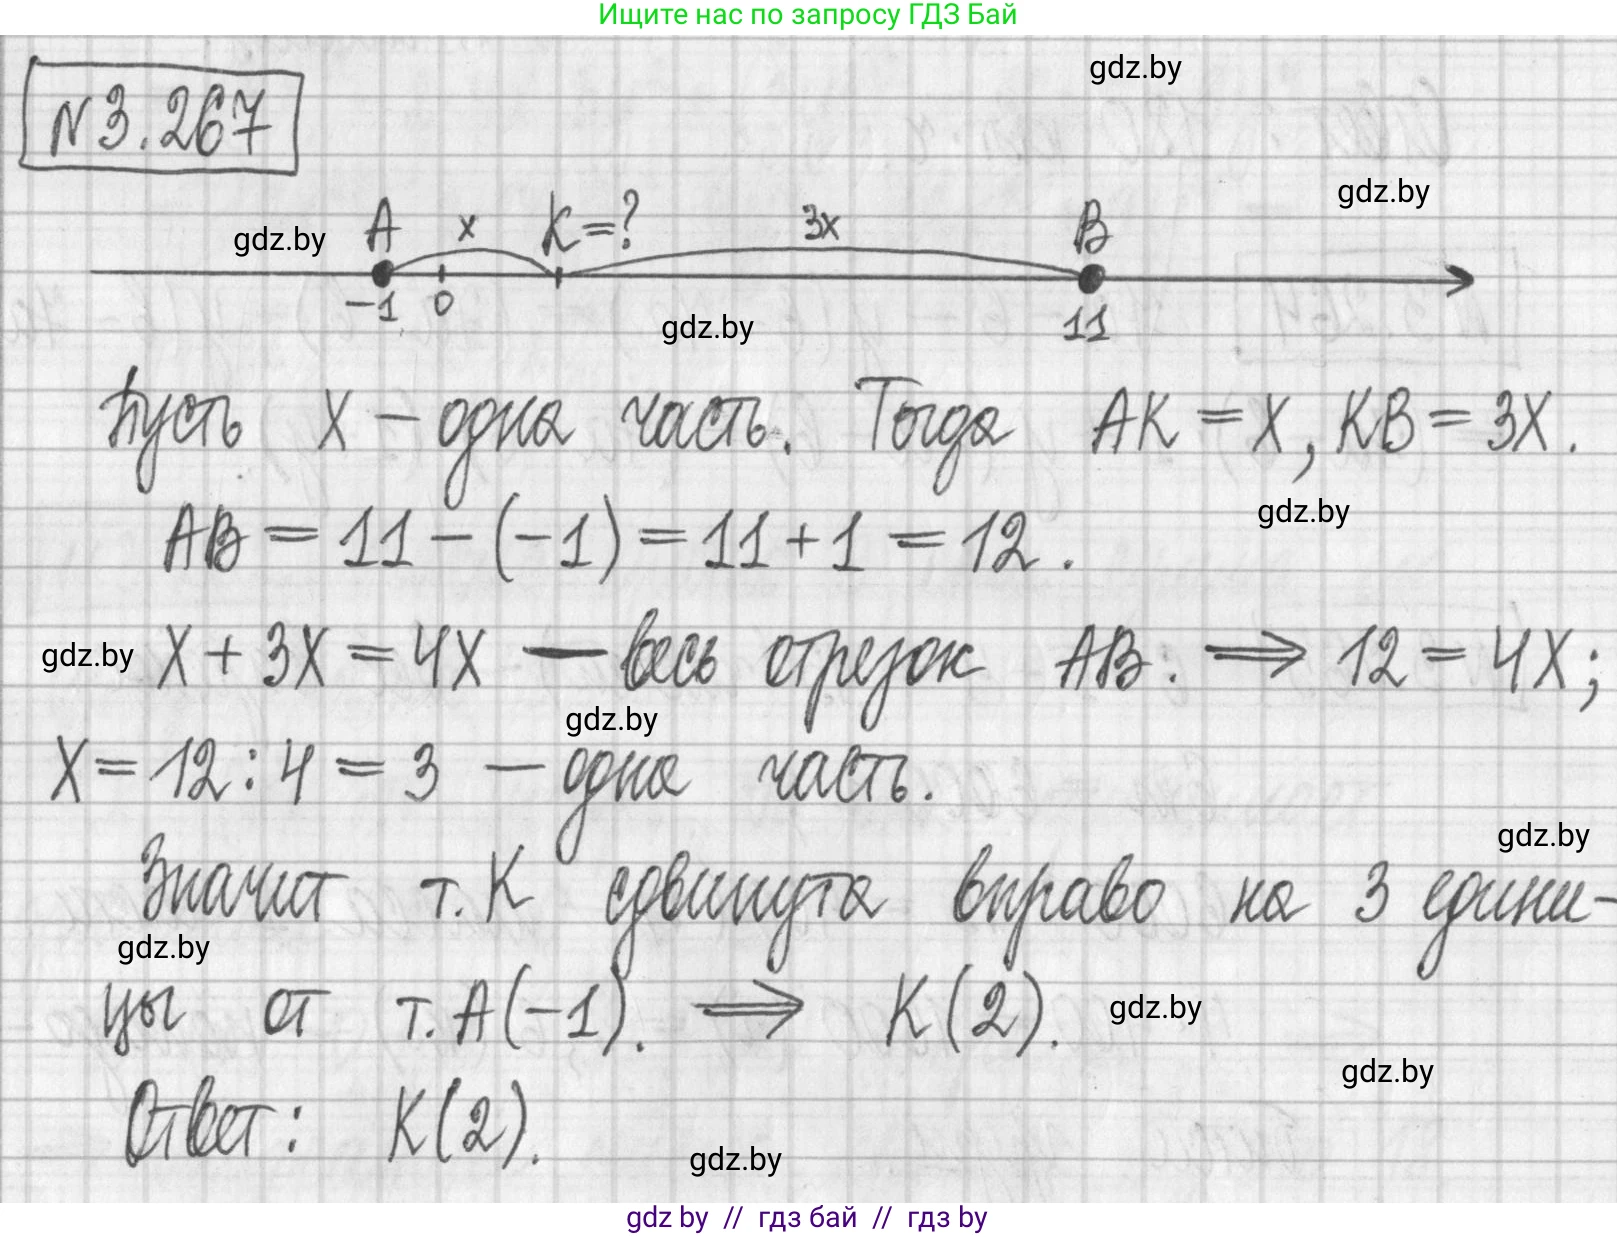 Ищите нас по запросу ГДЗ Бай
gdz.by
N 3.267
gdz.by
gdz.by
A x K=? 3x B
-1 0 11
gdz.by
Пусть x – одна часть. Тогда AK = x, KB = 3x.
gdz.by
AB = 11 - (-1) = 11 + 1 = 12.
gdz.by
x + 3x = 4x — весь отрезок AB. ⟹ 12 = 4x;
gdz.by
x = 12 : 4 = 3 – одна часть.
gdz.by
Значит т. K сдвинута вправо на 3 едини-
gdz.by
цы от т. A(-1). ⟹ K(2).
gdz.by
gdz.by
Ответ: K(2).
gdz.by
gdz by // гдз бай // гдз by